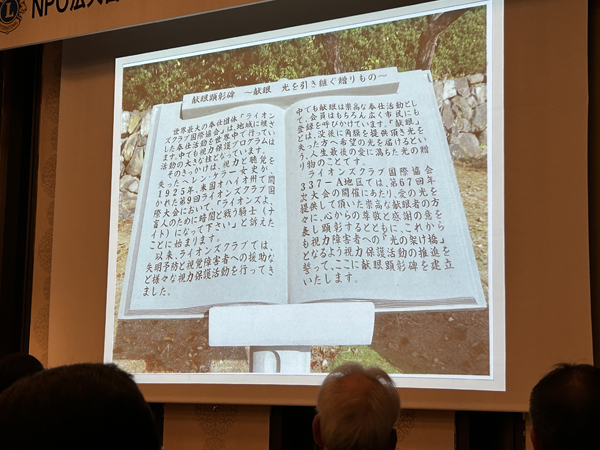 NPO法人
献眼顕彰碑 ～献眼 光を引き継ぐ贈りもの～
世界最大の奉仕団体「ライオン
ズクラブ国際協会」は、地域に根ざ
した奉仕活動を世界中で行ってい
ます。中でも視力保護プログラムは
活動の大きな柱となっています。
そのきっかけは、視力と聴覚を
失ったヘレン・ケラー女史が、
1925年、米国オハイオ州で開
かれた第9回ライオンズクラブ国
際大会において、「ライオンズよ、
盲人のために暗闇と戦う騎士(ナ
イト)になって下さい」と訴えた
ことに始まります。
以来、ライオンズクラブでは、
失明予防と視覚障害者への援助な
ど様々な視力保護活動を行ってき
ました。
中でも献眼は崇高な奉仕活動とし
て、会員はもちろん広く市民にも
登録を呼びかけています。「献眼」
とは、没後に角膜を提供頂き光を
失った方へ希望の光を届けるとい
う、人生最後の愛に満ちた光の贈
り物のことです。
ライオンズクラブ国際協会
337-A地区では、第67回年
次大会の開催にあたり、愛の光を
提供して頂いた崇高な献眼者の方
々に、心からの尊敬と感謝の意を
表し顕彰するとともに、これから
も視力障害者への「光の架け橋」
となるよう視力保護活動の推進を
誓って、ここに献眼顕彰碑を建立
いたします。